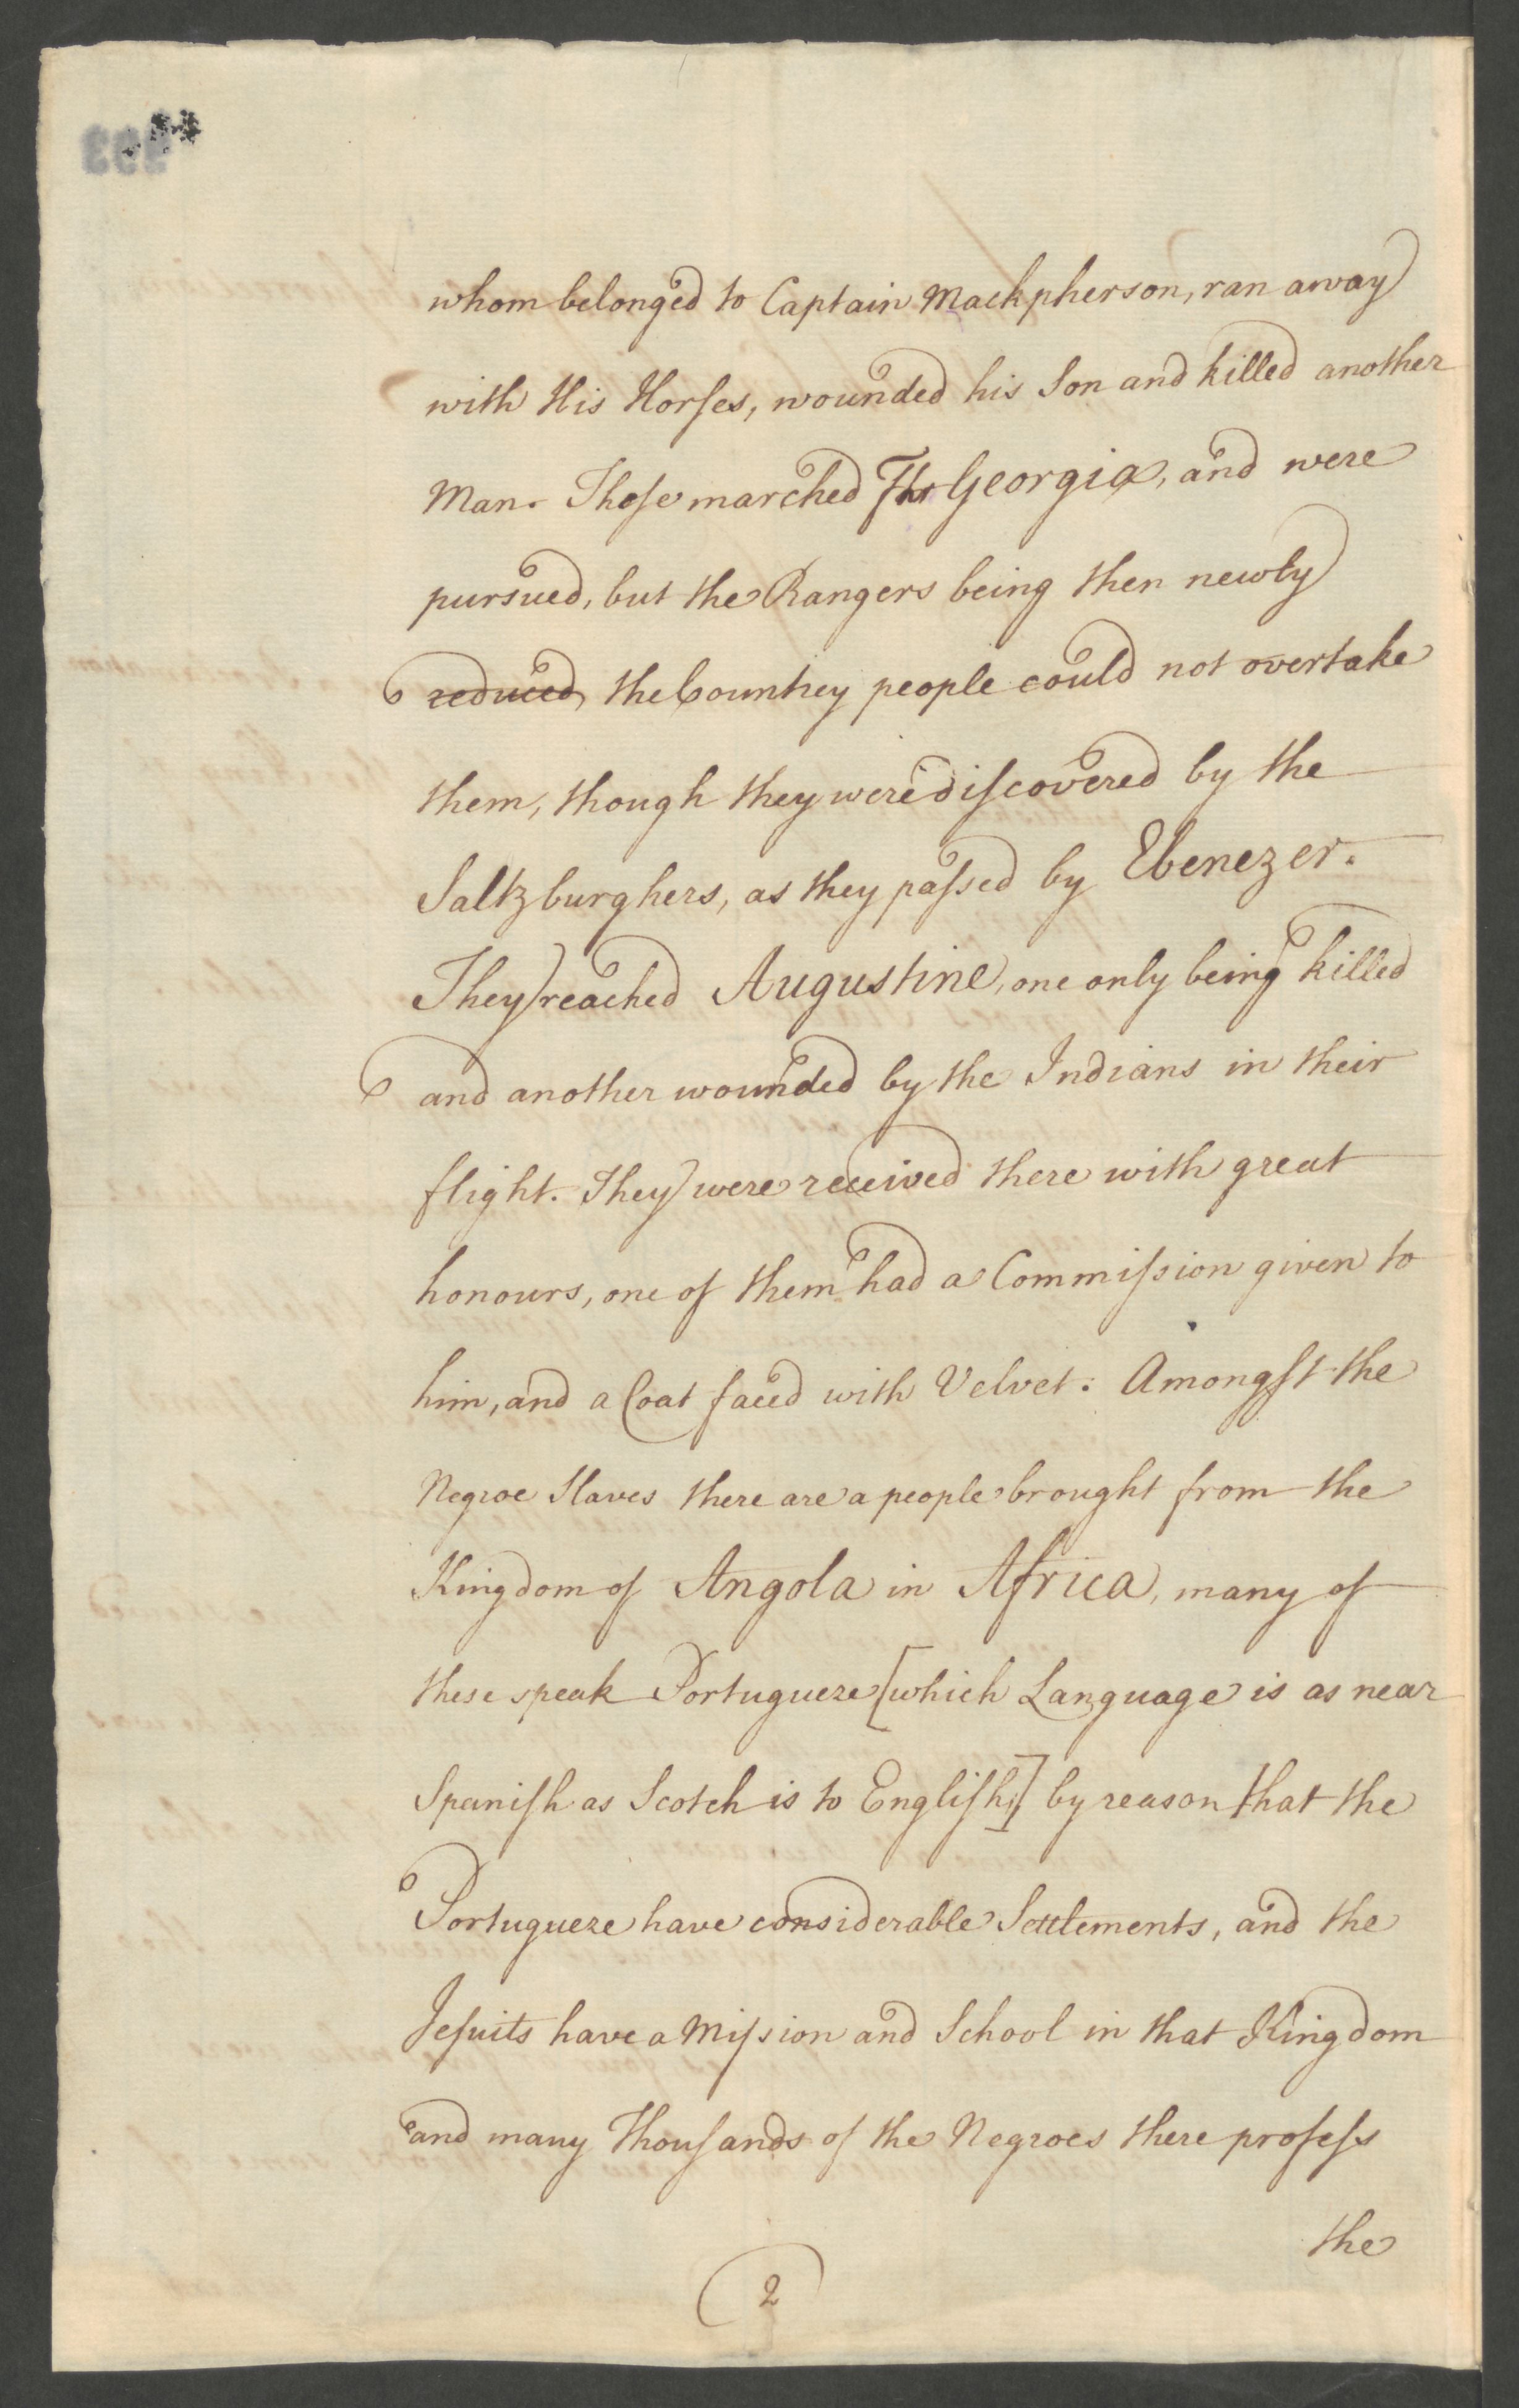 whom belonged to Captain Mackpherson, ran away
with His Horses, wounded his Son and killed another
Man. Those marched Thr Georgia, and were
pursued, but the Rangers being then newly
reduced, the Countrey people could not overtake
them, though they were discovered by the
Saltzburghers, as they passed by Ebenezer.
They reached Augustine, one only being killed
and another wounded by the Indians in their
flight. They were received there with great
honours, one of them had a Commission given to
him, and a Coat faced with Velvet. Amongst the
Negroe Slaves there are a people brought from the
Kingdom of Angola in Africa, many of
these speak Portugueze [which Language is as near
Spanish as Scotch is to English,] by reason that the
Portugueze have considerable Settlements, and the
Jesuits have a Mission and School in that Kingdom
and many Thousands of the Negroes there profess
the
2